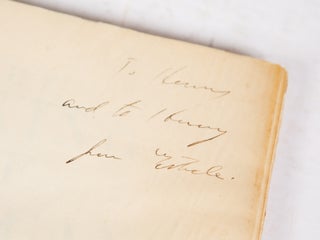 To Henry
and to Henry
from